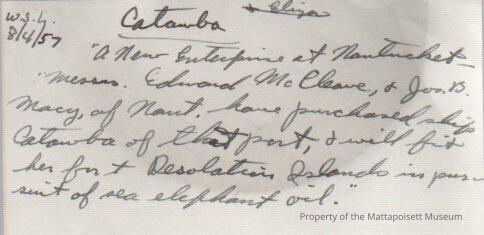 W.S.L.
8/4/57
Catawba
& Eliza
"A New Enterprise at Nantucket
"Messrs. Edward McCleave, & Jos. B.
Macy, of Nant. have purchased ship
Catawba of that port, & will fit
her for t Desolation Islands in pur-
suit of sea elephant oil."
Property of the Mattapoisett Museum